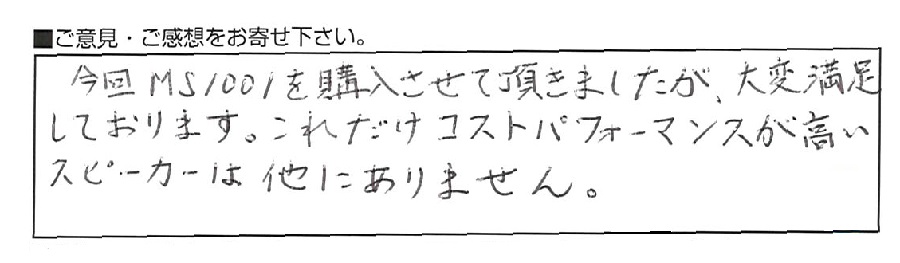 ■ご意見・ご感想をお寄せ下さい。
今回MS1001を購入させて頂きましたが、大変満足
しております。これだけコストパフォーマンスが高い
スピーカーは他にありません。